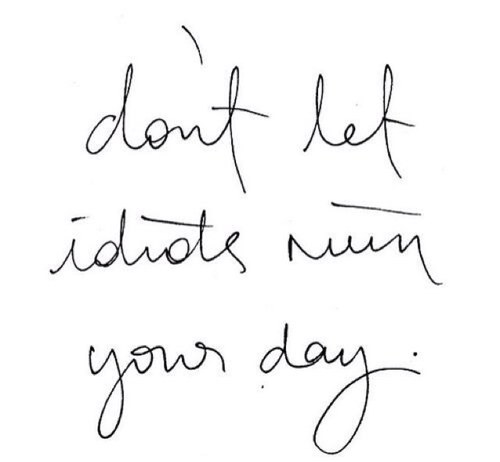 don't let
idiots ruin
your day.